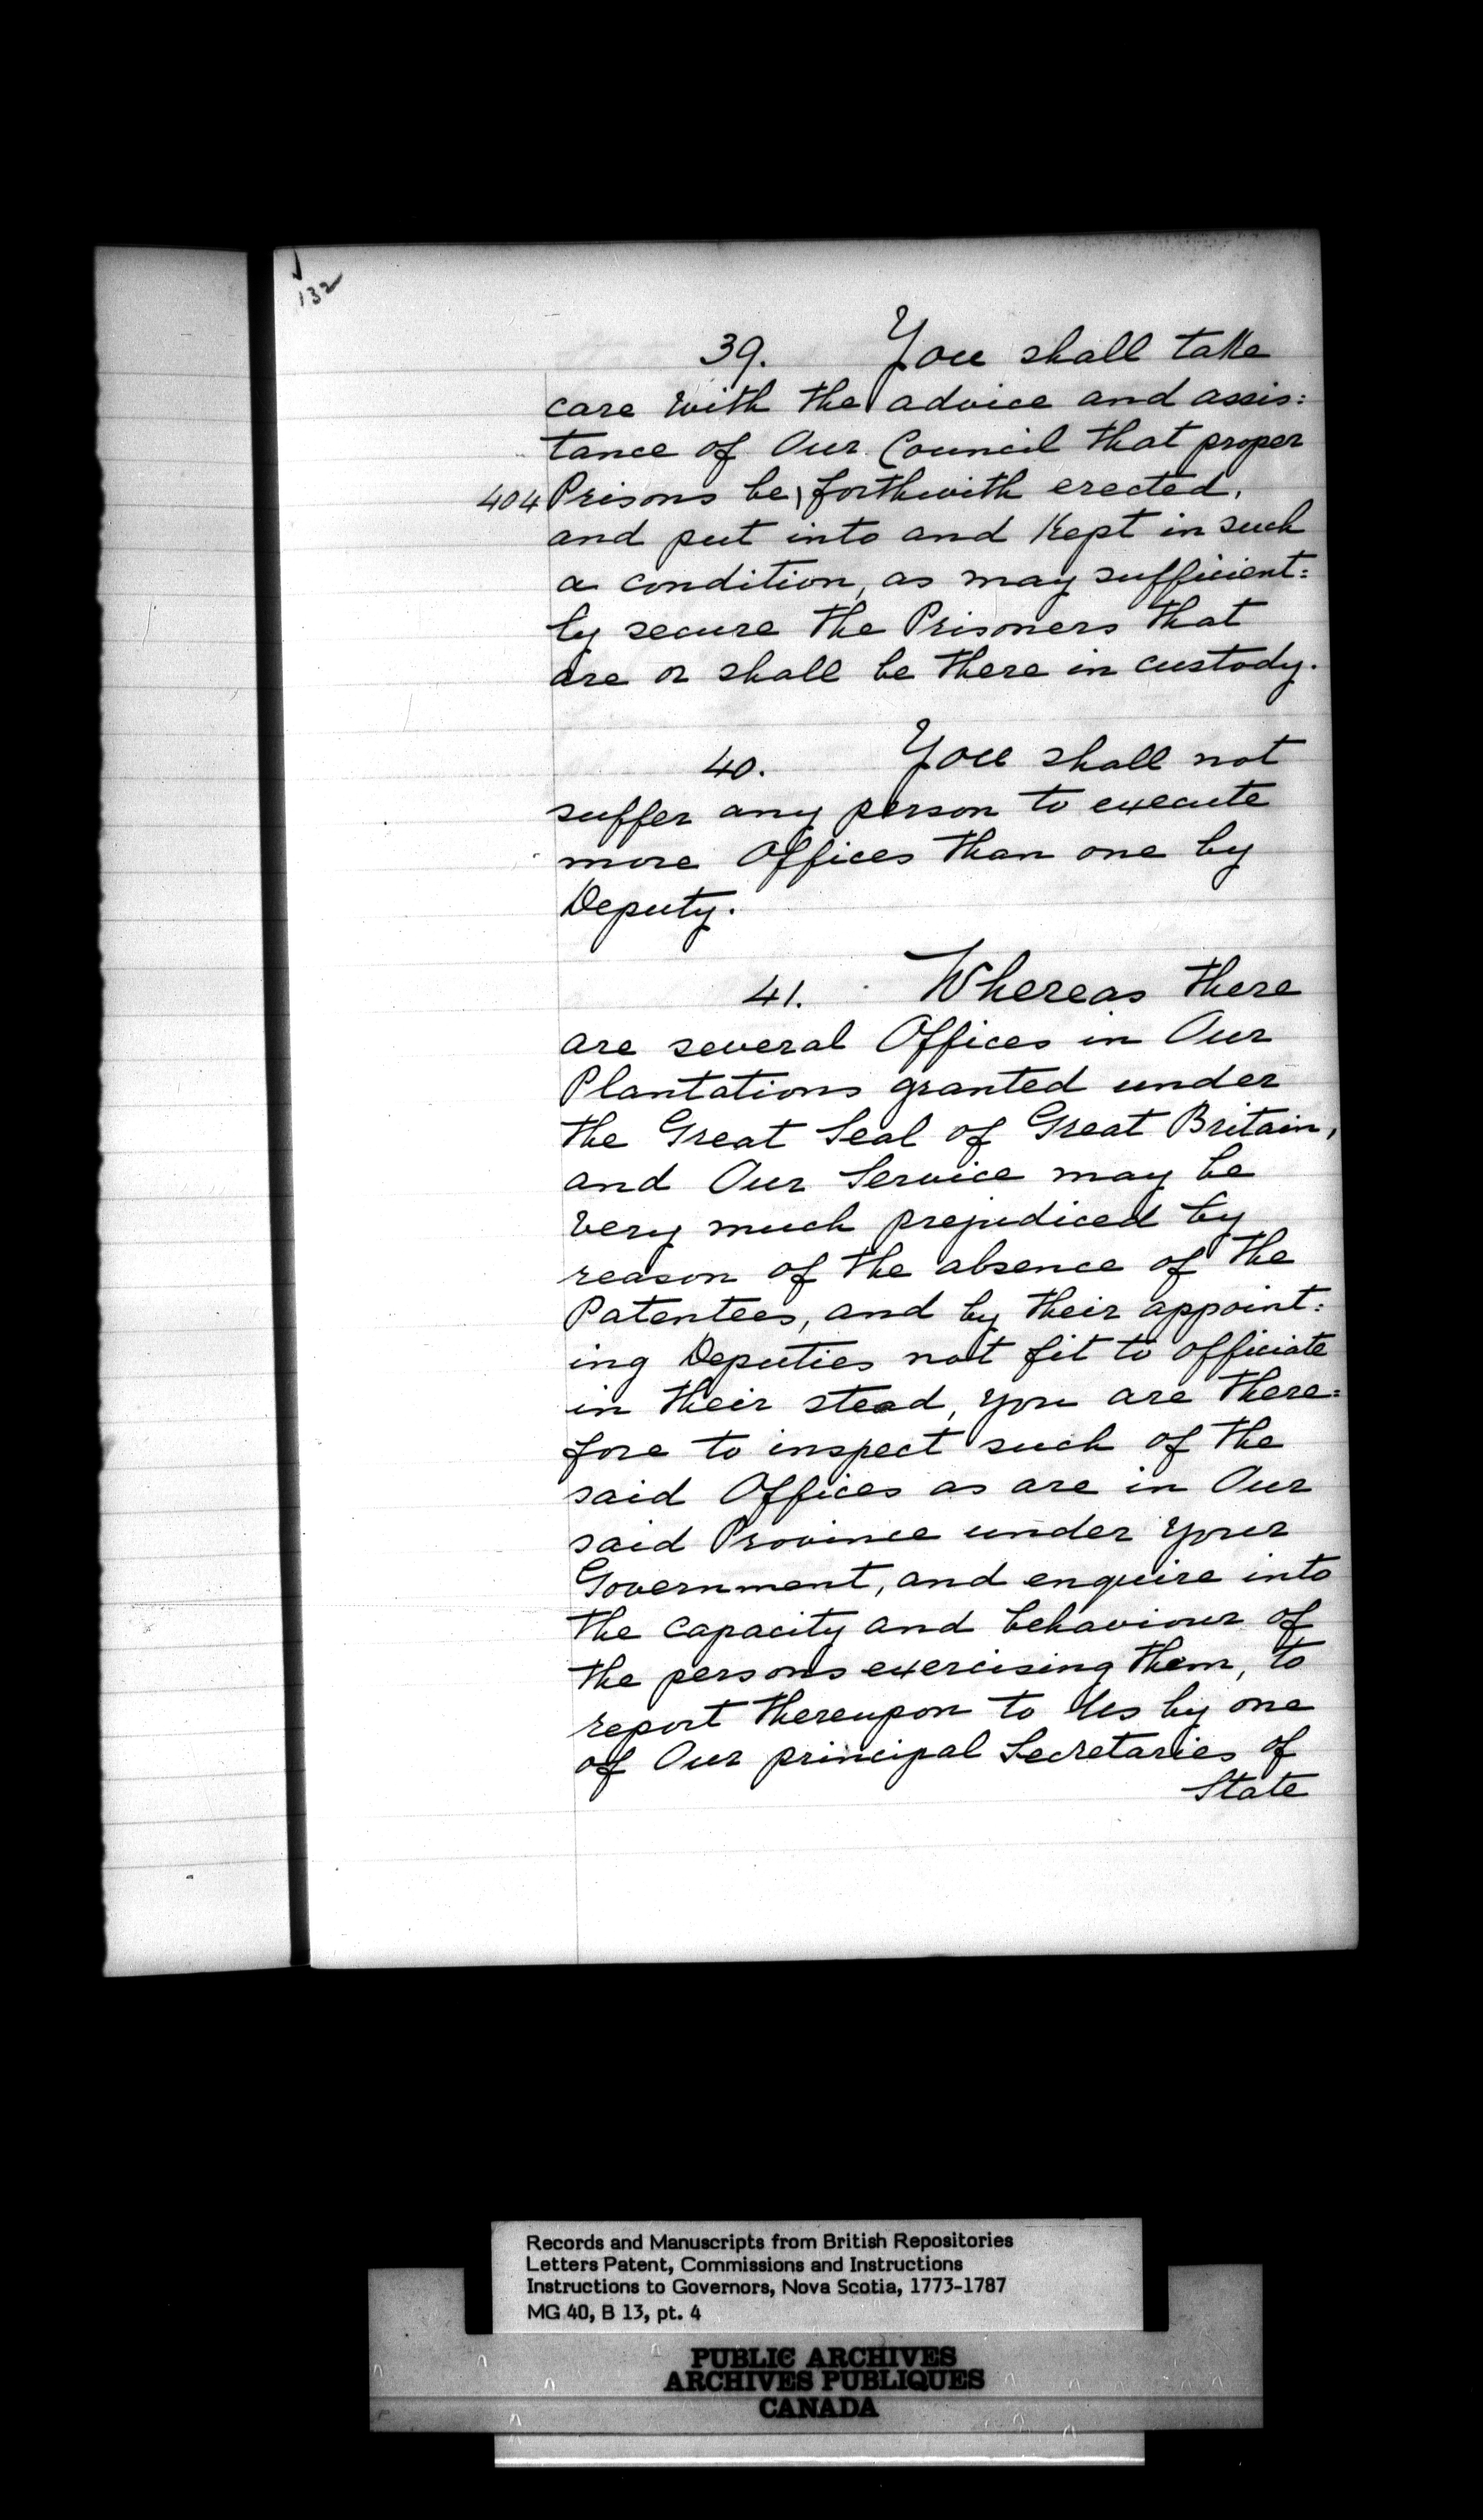 132
39. You shall take
care with the advice and assis:
tance of Our Council that proper
404 Prisons be \ forthwith erected,
and put into and kept in such
a condition, as may sufficient:
ly secure the Prisoners that
are or shall be there in custody.
40. You shall not
suffer any person to execute
more Offices than one by
Deputy.
41. Whereas there
are several Offices in Our
Plantations granted under
the Great Seal of Great Britain,
and Our Service may be
very much prejudiced by
reason of the absence of the
Patentees, and by their appoint:
ing Deputies not fit to officiate
in their stead, you are there:
fore to inspect such of the
said Offices as are in Our
said Province under your
Government, and enquire into
the capacity and behaviour of
the persons exercising them, to
report thereupon to Us by one
of Our principal Secretaries of
State
Records and Manuscripts from British Repositories
Letters Patent, Commissions and Instructions
Instructions to Governors, Nova Scotia, 1773-1787
MG 40, B 13, pt. 4
PUBLIC ARCHIVES
ARCHIVES PUBLIQUES
CANADA